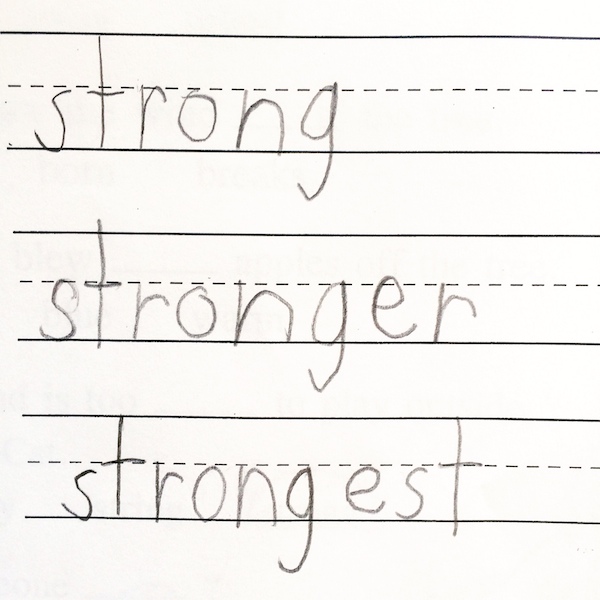 strong
stronger
strongest